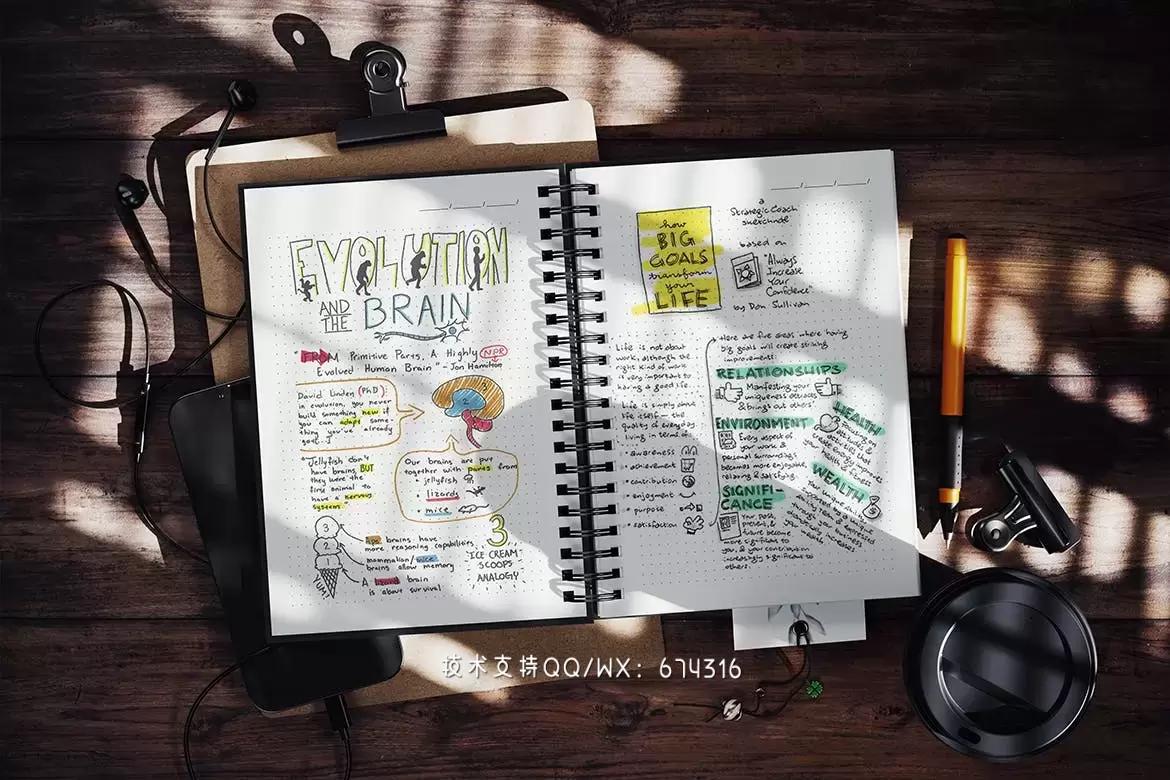 EVOLUTION
AND
THE
BRAIN
FROM Primitive Parts, A Highly NPR
Evolved Human Brain" - Jon Hamilton
David Linden (PhD):
in evolution, you never
build something new if
you can adapt some-
thing you've already
got...
3
2
1
Jellyfish don't
have brains, BUT
they were the
first animal to
have a nervous
system.
Our brains are put
together with parts from
• jellyfish
• lizards
• mice
3
2
1
YUM!
brains have
more reasoning capabilities
mammalian/mice
brains allow memory
A lizard brain
is about survival
3
ICE CREAM
SCOOPS
ANALOGY
how
BIG
GOALS
transform
your
LIFE
a
Strategic Coach
sketchnote
based on
"Always
Increase
Your
Confidence"
by Dan Sullivan
Life is not about
work, although the
right kind of work
is very important to
having a good life.
Life is simply about
life itself - the
quality of everyday
living in terms of:
• awareness
• achievement
• contribution
• enjoyment
• purpose
• satisfaction
Here are five areas where having
big goals will create striking
improvements:
RELATIONSHIPS
Manifesting your
uniqueness attracts
& brings out others'
ENVIRONMENT
Every aspect of
your work &
personal surroundings
becomes more enjoyable,
relaxing & satisfying.
SIGNIFI-
CANCE
Your past,
present, &
future become
more significant to
you, & your contribution
increasingly significant to
others.
HEALTH
Focusing on
attitudes &
activities that
create energy improves
WEALTH
技术支持QQ/WX: 674316